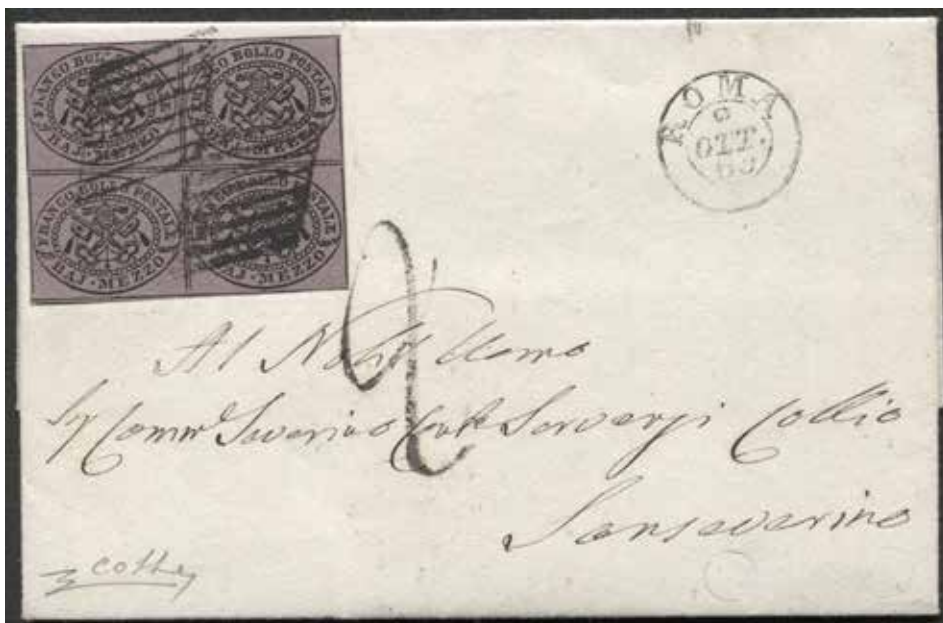 FRANCO BOLLO POSTALE
BAJ · MEZZO
FRANCO BOLLO POSTALE
BAJ · MEZZO
FRANCO BOLLO POSTALE
BAJ · MEZZO
FRANCO BOLLO POSTALE
BAJ · MEZZO
ROMA
6
OTT.
2
Al Nobil Uomo
Severino Servanzi Collio
Sanseverino